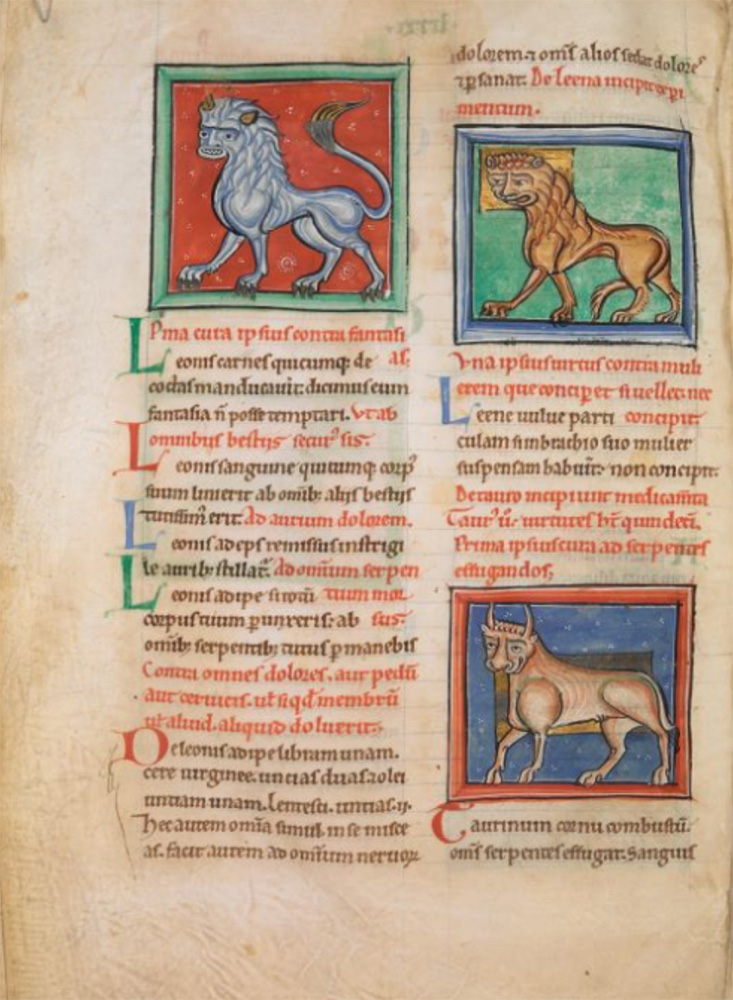 Prima cura ipsius contra fantasi
Leonis carnes quicumq; de as:
coctas manducauit: dicimus eum
fantasia n̄ posse temptari. Vt ab
omnibus bestiis secur᾿ sis:
Leonis sanguine quicumq; corp᾿
suum linierit ab omib; aliis bestiis
tutissim᾿ erit. Ad aurium dolorem.
Leonis adeps remissus in strigi
le aurib; stillat᾿. Ad omnium serpen
Leonis adipe si totū tium mor
corpus tuum punxeris: ab sus:
omib; serpentib; tutus p manebis
Contra omnes dolores. aut pedū
aut ceruicis. ul si qd membrū
ul aliud. aliquid doluerit:
De leonis adipe libram unam.
cere uirginee. uncias duas. olei
untiam unam. lentisci. untias .ij.
Hec autem omīa simul in se misce
as. facit autem ad omnium neruoꝝ
dolorem. ⁊ omīs alios sedat dolores
⁊ psanat. De leena incipit
Vna ipsius uirtus contra muli
erem que concip̄et si uellet nec
Leene uulue parti concipit.
culam si in brachio suo mulier
suspensam habuit: non concipit.
De tauro incipiunt medicam̄ta
Taur᾿ u̅: uirtutes ht̄ quindeci.
Prima ipsius cura ad serpentes
effugandos,
Taurinum cornu combustū.
omīs serpentes effugat. Sanguis